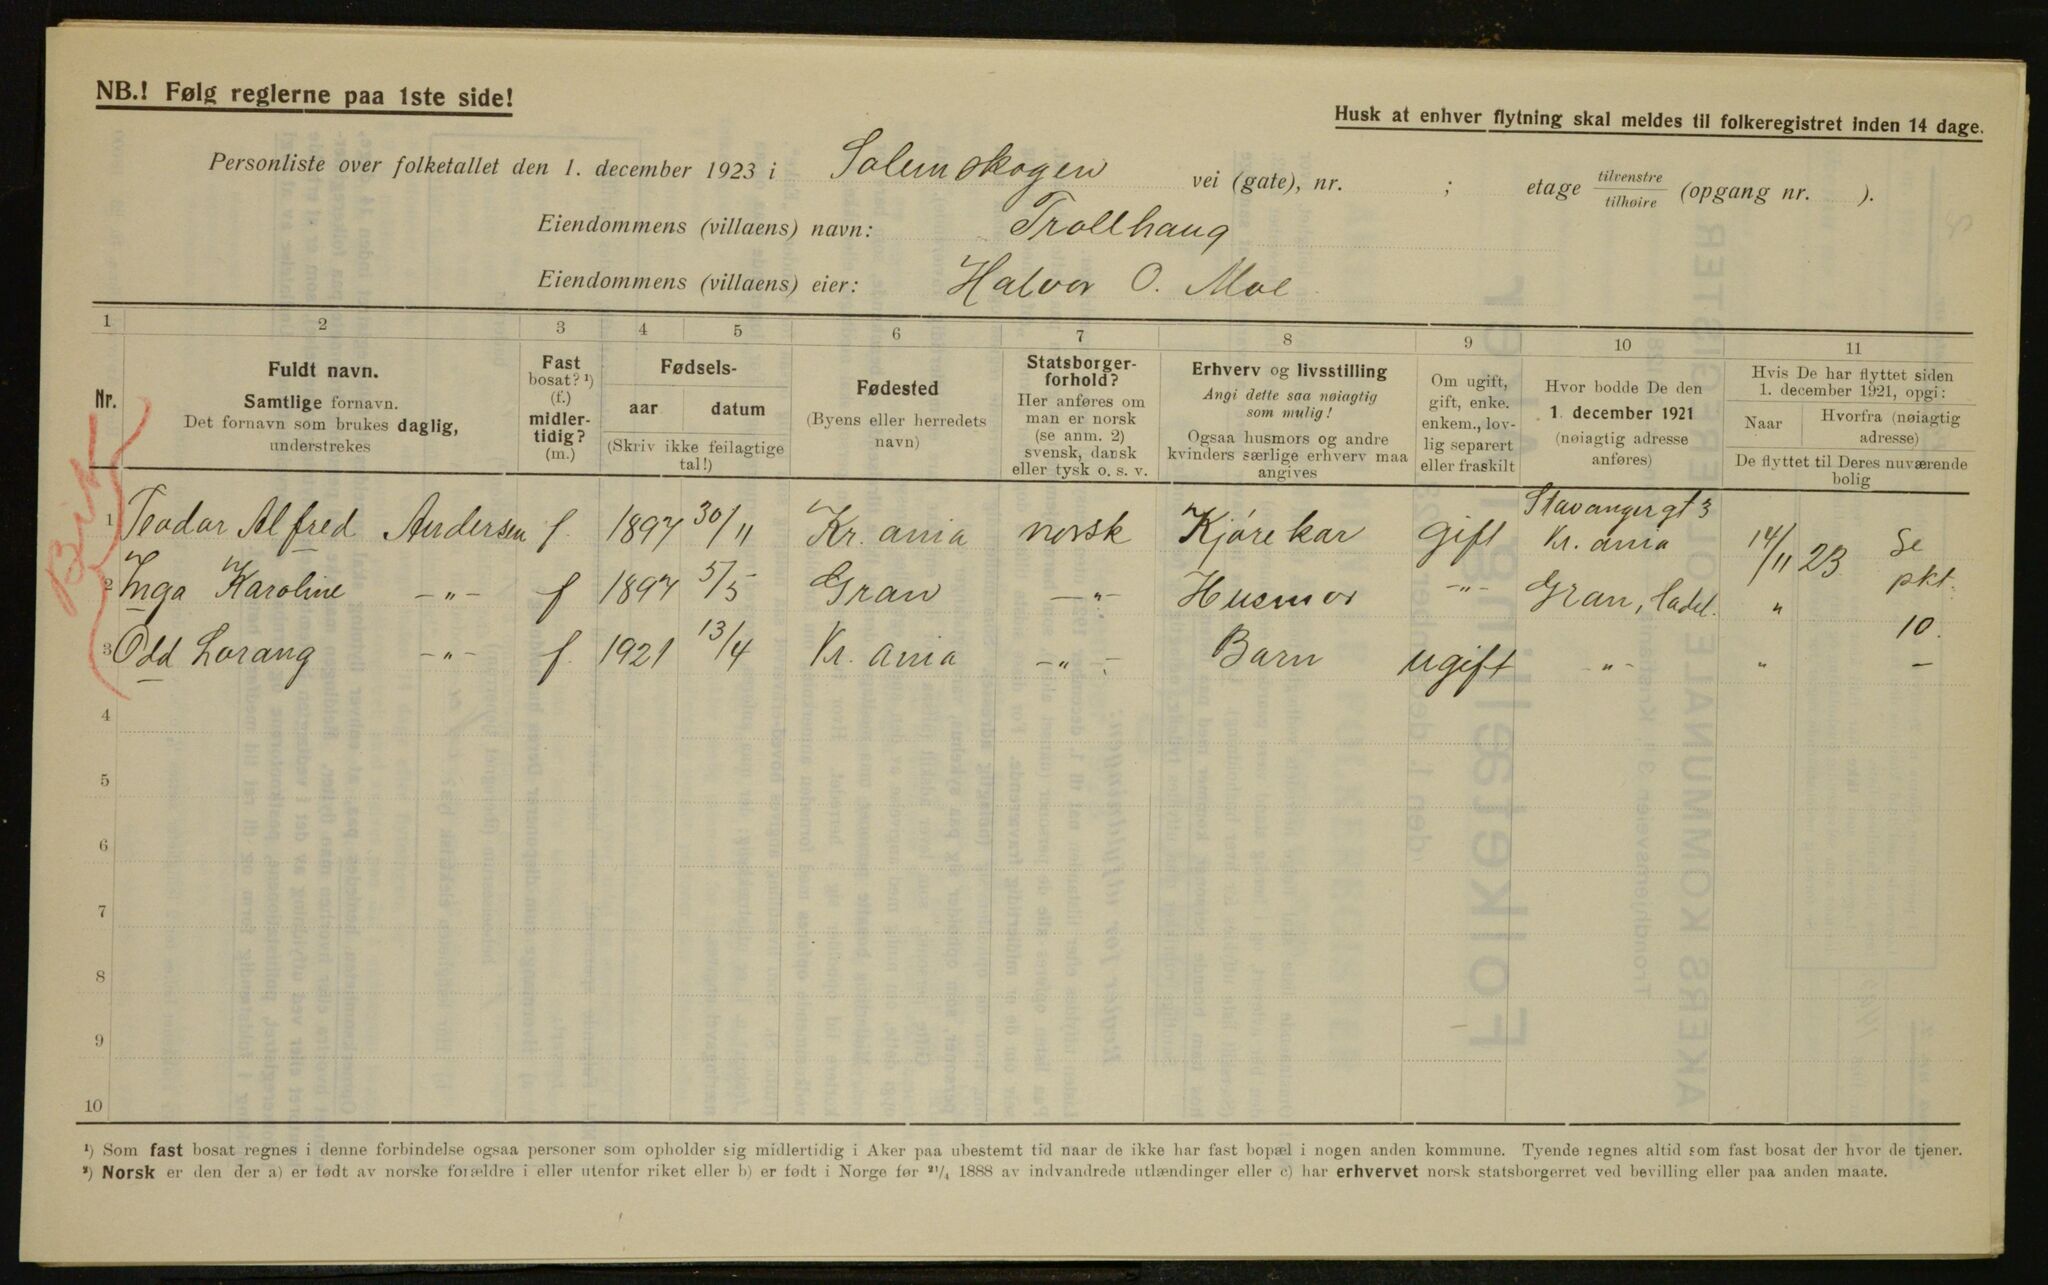 NB.! Følg reglerne paa 1ste side!
Husk at enhver flytning skal meldes til folkeregistret inden 14 dage.
Personliste over folketallet den 1. december 1923 i Solemskogen vei (gate), nr. ; etage tilvenstre/tilhøire (opgang nr. ).
Eiendommens (villaens) navn: Trollhaug
Eiendommens (villaens) eier: Halvor O. Moe
1 2 3 4 5 6 7 8 9 10 11
Nr.
Fuldt navn.
Samtlige fornavn.
Det fornavn som brukes daglig,
understrekes
Fast
bosat? ¹)
(f.)
midler-
tidig?
(m.)
Fødsels-
aar datum
(Skriv ikke feilagtige
tal!)
Fødested
(Byens eller herredets
navn)
Statsborger-
forhold?
Her anføres om
man er norsk
(se anm. 2)
svensk, dansk
eller tysk o. s. v.
Erhverv og livsstilling
Angi dette saa nøiagtig
som mulig!
Ogsaa husmors og andre
kvinders særlige erhverv maa
angives
Om ugift,
gift, enke.
enkem., lov-
lig separert
eller fraskilt
Hvor bodde De den
1. december 1921
(nøiagtig adresse
anføres)
Hvis De har flyttet siden
1. december 1921, opgi:
Naar Hvorfra (nøiagtig
adresse)
De flyttet til Deres nuværende
bolig
1 Teodor Alfred Andersen f. 1897 30/11 Kr. ania norsk Kjørekar gift Stavangergt 3
Kr. ania 14/11 23 Se
2 Inga Karoline -„- f 1897 5/5 Gran -„- Husmor -„- Gran, Hadel. „ pkt.
10.
3 Odd Lorang -„- f. 1921 13/4 Kr. ania -„- Barn ugift -„- „ -
4
5
6
7
8
9
10
¹) Som fast bosat regnes i denne forbindelse ogsaa personer som opholder sig midlertidig i Aker paa ubestemt tid naar de ikke har fast bopæl i nogen anden kommune. Tyende regnes altid som fast bosat der hvor de tjener.
²) Norsk er den der a) er født av norske forældre i eller utenfor riket eller b) er født i Norge før ²¹/₄ 1888 av indvandrede utlændinger eller c) har erhvervet norsk statsborgerret ved bevilling eller paa anden maate.